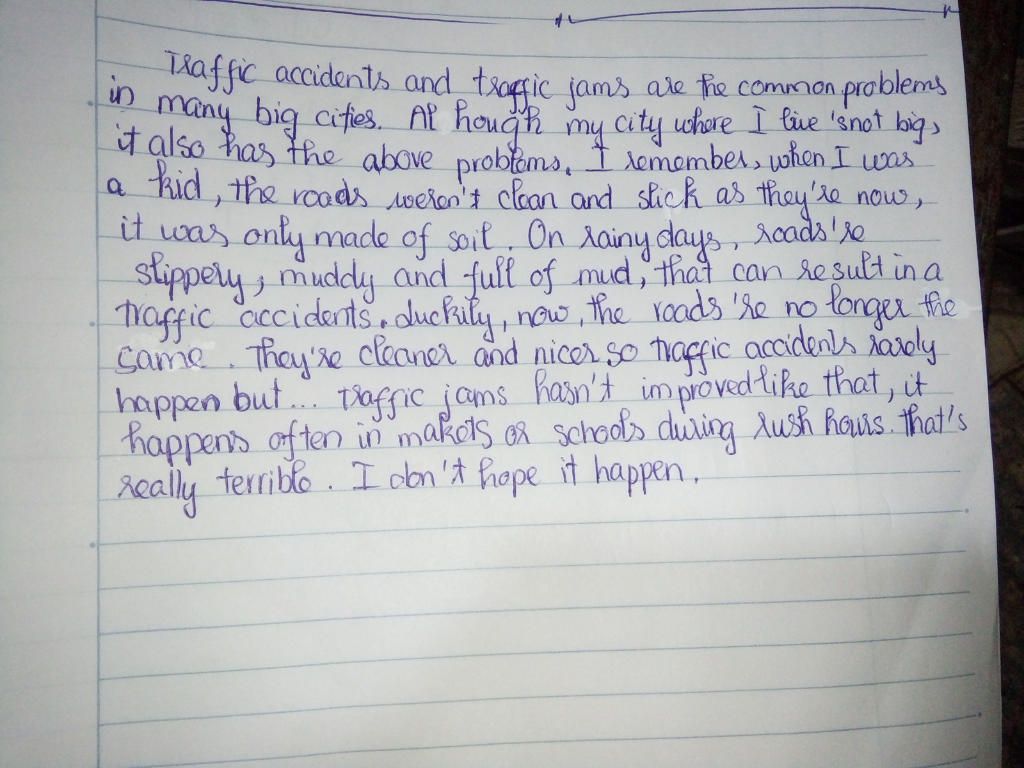 Traffic accidents and traffic jams are the common problems
in many big cities. Al though my city where I live 'snot big,
it also has the above problems. I remember, when I was
a kid, the roads weren't clean and slick as they're now,
it was only made of soil. On rainy days, roads're
slippery, muddy and full of mud, that can result in a
traffic accidents. luckily, now, the roads 're no longer the
same. They're cleaner and nicer so traffic accidents rarely
happen but... traffic jams hasn't improved like that, it
happens often in makets or schools during rush hours. that's
really terrible. I don't hope it happen.